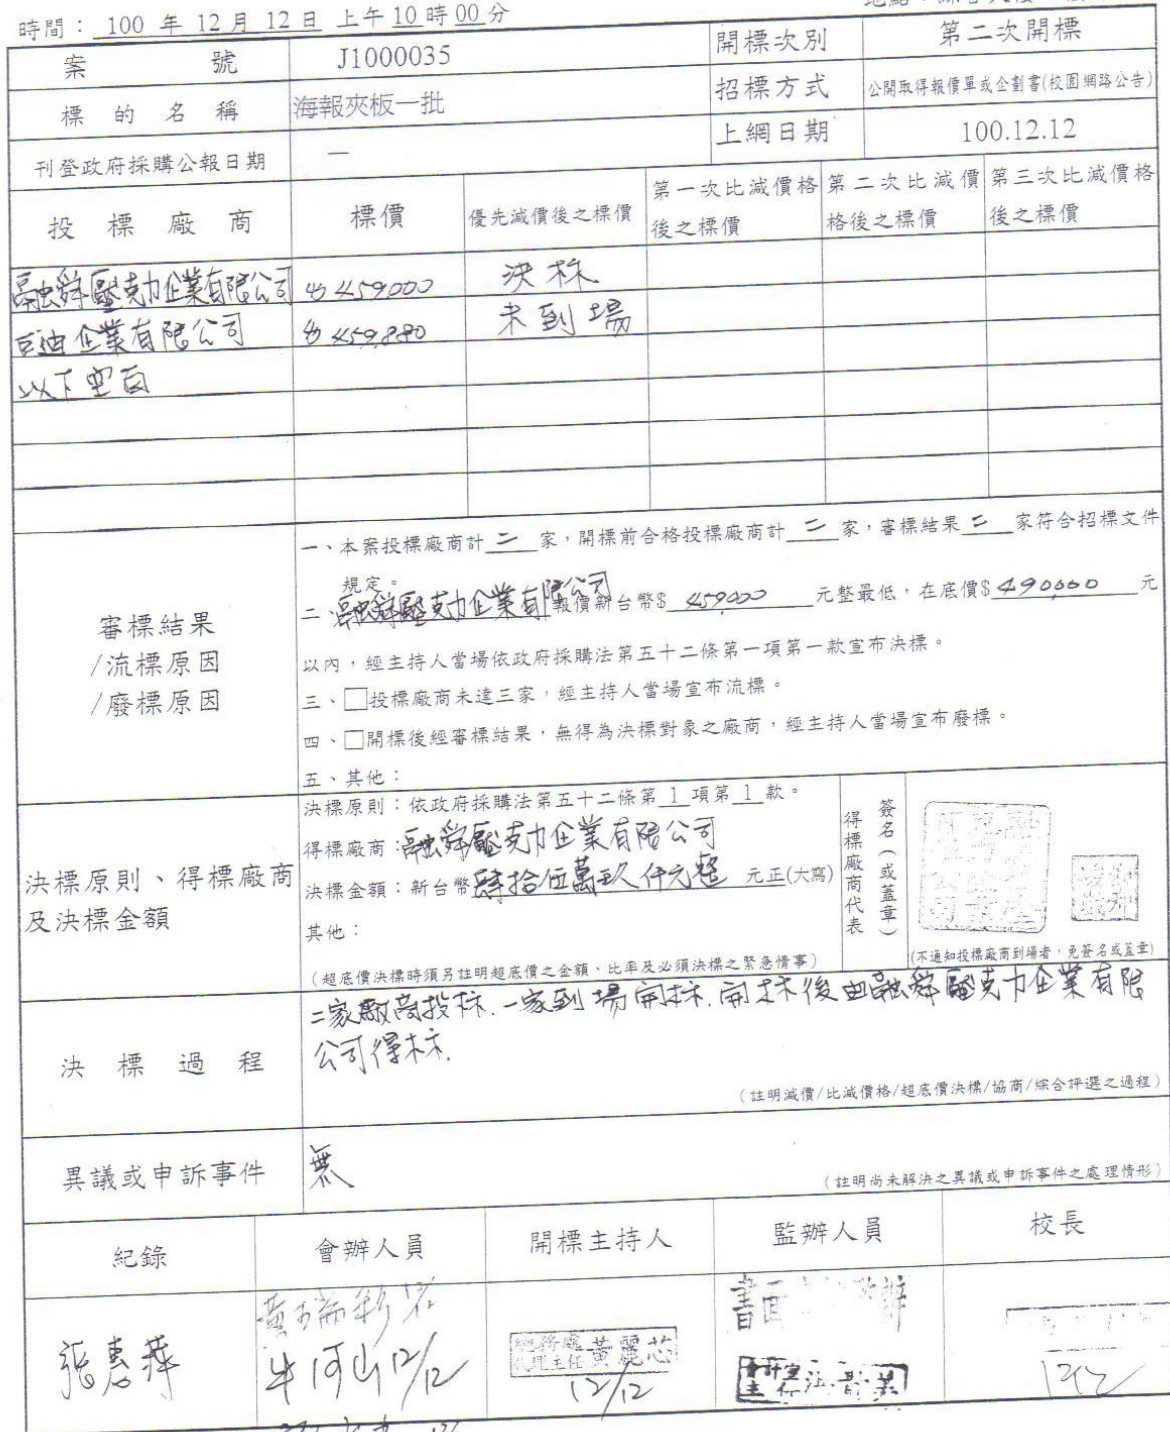 時間：100 年 12 月 12 日 上午 10 時 00 分
案號 J1000035 開標次別 第二次開標
標的名稱 海報夾板一批 招標方式 公開取得報價單或企劃書(校園網路公告)
刊登政府採購公報日期 — 上網日期 100.12.12
投標廠商 標價 優先減價後之標價 第一次比減價格後之標價 第二次比減價格後之標價 第三次比減價格後之標價
融舜壓克力企業有限公司 $459000 決標
企業有限公司 $459,880 未到場
以下空白
審標結果
/流標原因
/廢標原因
一、本案投標廠商計 二 家，開標前合格投標廠商計 二 家，審標結果 二 家符合招標文件
規定。
二 融舜壓克力企業有限公司 報價新台幣$ 459000 元整最低，在底價$ 490000 元
以內，經主持人當場依政府採購法第五十二條第一項第一款宣布決標。
三、□投標廠商未達三家，經主持人當場宣布流標。
四、□開標後經審標結果，無得為決標對象之廠商，經主持人當場宣布廢標。
五、其他：
決標原則、得標廠商
及決標金額
決標原則：依政府採購法第五十二條第 1 項第 1 款。
得標廠商：融舜壓克力企業有限公司
決標金額：新台幣肆拾伍萬玖仟元整 元正(大寫)
其他：
（超底價決標時須另註明超底價之金額、比率及必須決標之緊急情事）
得標廠商代表
簽名（或蓋章）
(不通知投標廠商到場者，免簽名或蓋章)
決標過程
二家廠商投标.一家到場開标.開标後由融舜壓克力企業有限
公司得标.
（註明減價/比減價格/超底價決標/協商/綜合評選之過程）
異議或申訴事件 無
（註明尚未解決之異議或申訴事件之處理情形）
紀錄 會辦人員 開標主持人 監辦人員 校長
張惠萍
12/12
總務處
代理主任 黃麗芯
12/12
書面
會計室
主任